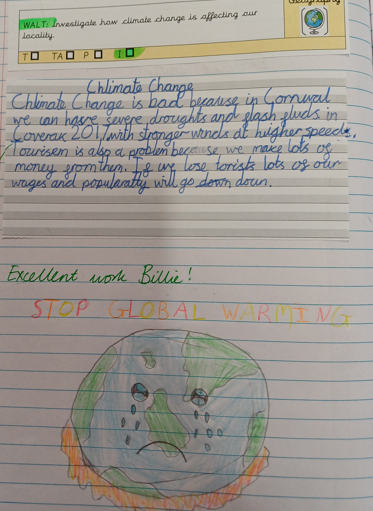 Geography
WALT: Investigate how climate change is affecting our
locality.
T TA P I
Chlimate Change
Chlimate Change is bad because in Cornwal
we can have severe droughts and flash fluds in
Coverak 201, with stronger winds at higher speeds.
Tourisem is also a problem because we make lots of
money from them. If we lose torists lots of our
wages and popularatty will go down down.
Excellent work Billie!
STOP GLOBAL WARMING